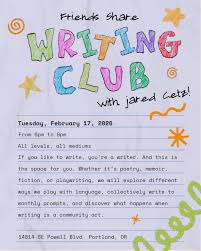 Friends Share
WRITING
CLUB
with Jared Getz!
Tuesday, February 17, 2026
From 6pm to 8pm
All levels, all mediums
If you like to write, you're a writer. And this is
the space for you. Whether it's poetry, memoir,
fiction, or playwriting, we will explore different
ways we play with language, collectively write to
monthly prompts, and discover what happens when
writing is a community art.
14814 SE Powell Blvd. Portland, OR